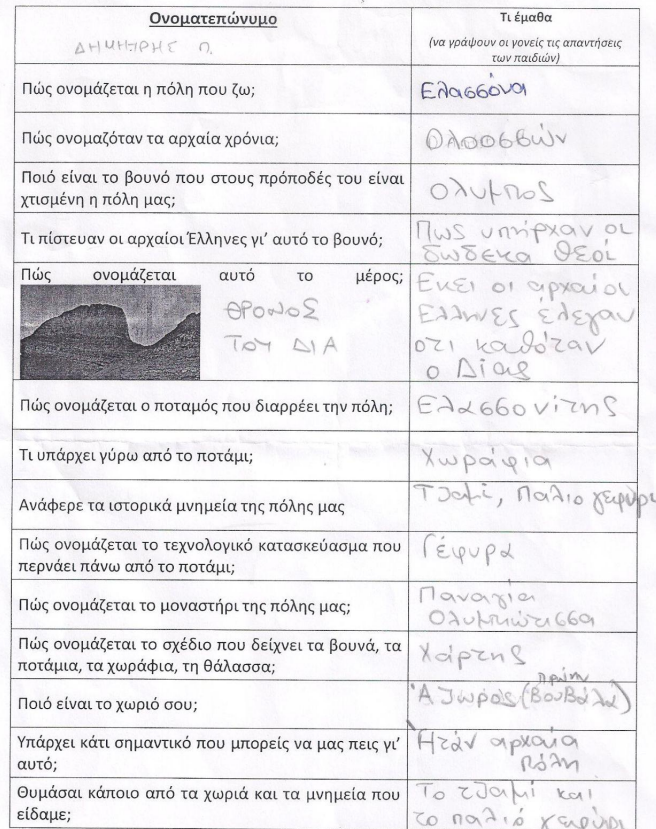 Ονοματεπώνυμο
ΔΗΜΗΤΡΗΣ Π.
Τι έμαθα
(να γράψουν οι γονείς τις απαντήσεις
των παιδιών)
Πώς ονομάζεται η πόλη που ζω;
Ελασσόνα
Πώς ονομαζόταν τα αρχαία χρόνια;
Ολοοσσών
Ποιό είναι το βουνό που στους πρόποδές του είναι
χτισμένη η πόλη μας;
Ολυμπος
Τι πίστευαν οι αρχαίοι Έλληνες γι' αυτό το βουνό;
Πως υπήρχαν οι
δώδεκα θεοί
Πώς ονομάζεται αυτό το μέρος;
ΘΡΟΝΟΣ
ΤΟΥ ΔΙΑ
Εκεί οι αρχαίοι
Ελληνες έλεγαν
οτι καθόταν
ο Δίας
Πώς ονομάζεται ο ποταμός που διαρρέει την πόλη;
Ελασσονίτης
Τι υπάρχει γύρω από το ποτάμι;
Χωράφια
Ανάφερε τα ιστορικά μνημεία της πόλης μας
Τζαμί, Παλιο γεφύρι
Πώς ονομάζεται το τεχνολογικό κατασκεύασμα που
περνάει πάνω από το ποτάμι;
Γέφυρα
Πώς ονομάζεται το μοναστήρι της πόλης μας;
Παναγία
Ολυμπιώτισσα
Πώς ονομάζεται το σχέδιο που δείχνει τα βουνά, τα
ποτάμια, τα χωράφια, τη θάλασσα;
Χάρτης
Ποιό είναι το χωριό σου;
πρώην
Άζωρος (Βουβάλα)
Υπάρχει κάτι σημαντικό που μπορείς να μας πεις γι'
αυτό;
Ήταν αρχαία
πόλη
Θυμάσαι κάποιο από τα χωριά και τα μνημεία που
είδαμε;
Το τζαμί και
το παλιό γεφύρι